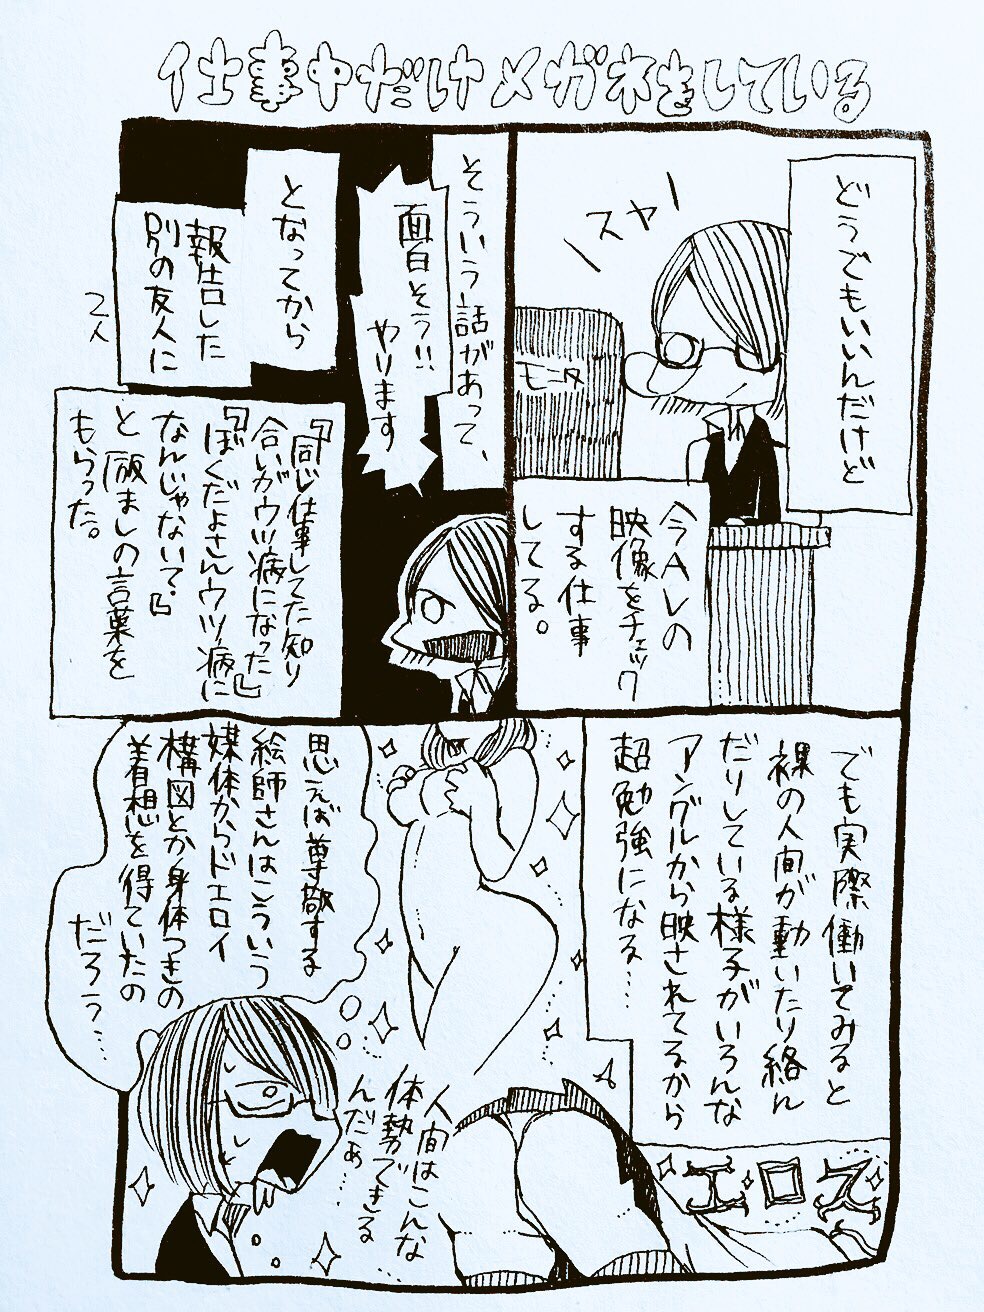 仕事中だけメガネをしている
どうでもいいんだけど
スヤー
モニタ
今ＡＶの
映像をチェック
する仕事
してる。
そういう話があって、
面白そう!!
やります
となってから
報告した
別の友人に
2人
『同じ仕事してた知り
合いがウツ病になった』
『ぼくだよさんウツ病に
なんじゃないで。』
と励ましの言葉を
もらった。
でも実際働いてみると
裸の人間が動いたり絡ん
だりしている様子がいろんな
アングルから映されてるから
超勉強になる…
エロス
人間はこんな
体勢できる
んだぁ…
思えば尊敬する
絵師さんはこういう
媒体からドエロイ
構図とか身体つきの
着想を得ていたの
だろう…